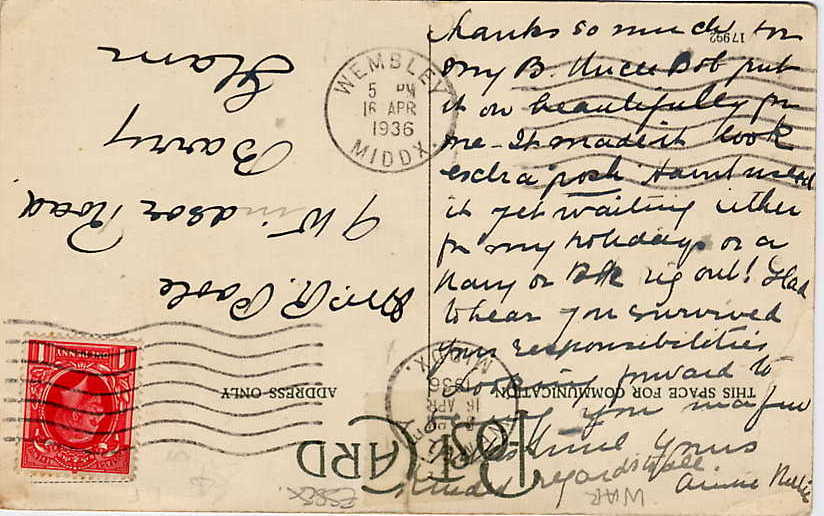 thanks so much for
my B. Uncle Bob put
it on beautifully for
me - It made it look
extra posh. Havnt used
it yet waiting either
for my holidays or a
navy or Blk rig out! Glad
to hear you survived
your responsibilities
Looking forward to
you
yours
Kindest regards to all
Annie
17992
WEMBLEY
5 PM
16 APR
1936
MIDDX.
WEMBLEY
16 APR
1936
MIDDX.
POST CARD
THIS SPACE FOR COMMUNICATION
ADDRESS ONLY
R. Poole
9 Windsor Road
Barry
Glam
ONE PENNY
ESSEX.
WAR